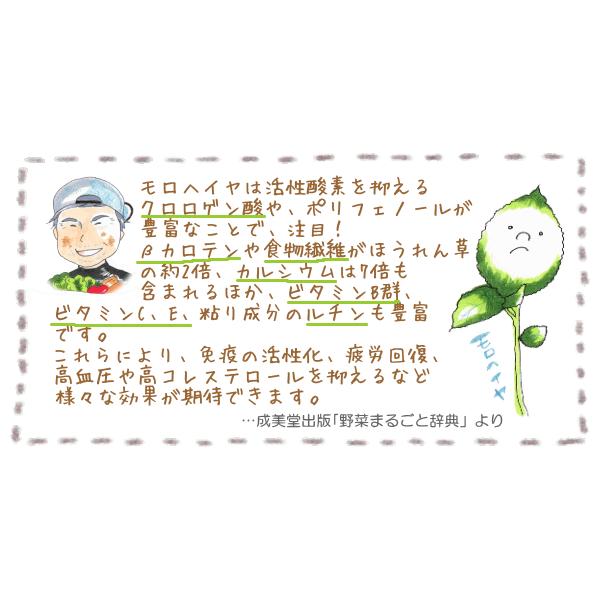 モロヘイヤは活性酸素を抑える
クロロゲン酸や、ポリフェノールが
豊富なことで、注目!
βカロテンや食物繊維がほうれん草
の約2倍、カルシウムは7倍も
含まれるほか、ビタミンB群、
ビタミンC、E、粘り成分のルチンも豊富
です。
これらにより、免疫の活性化、疲労回復、
高血圧や高コレステロールを抑えるなど
様々な効果が期待できます。
…成美堂出版「野菜まるごと辞典」より
モロヘイヤ